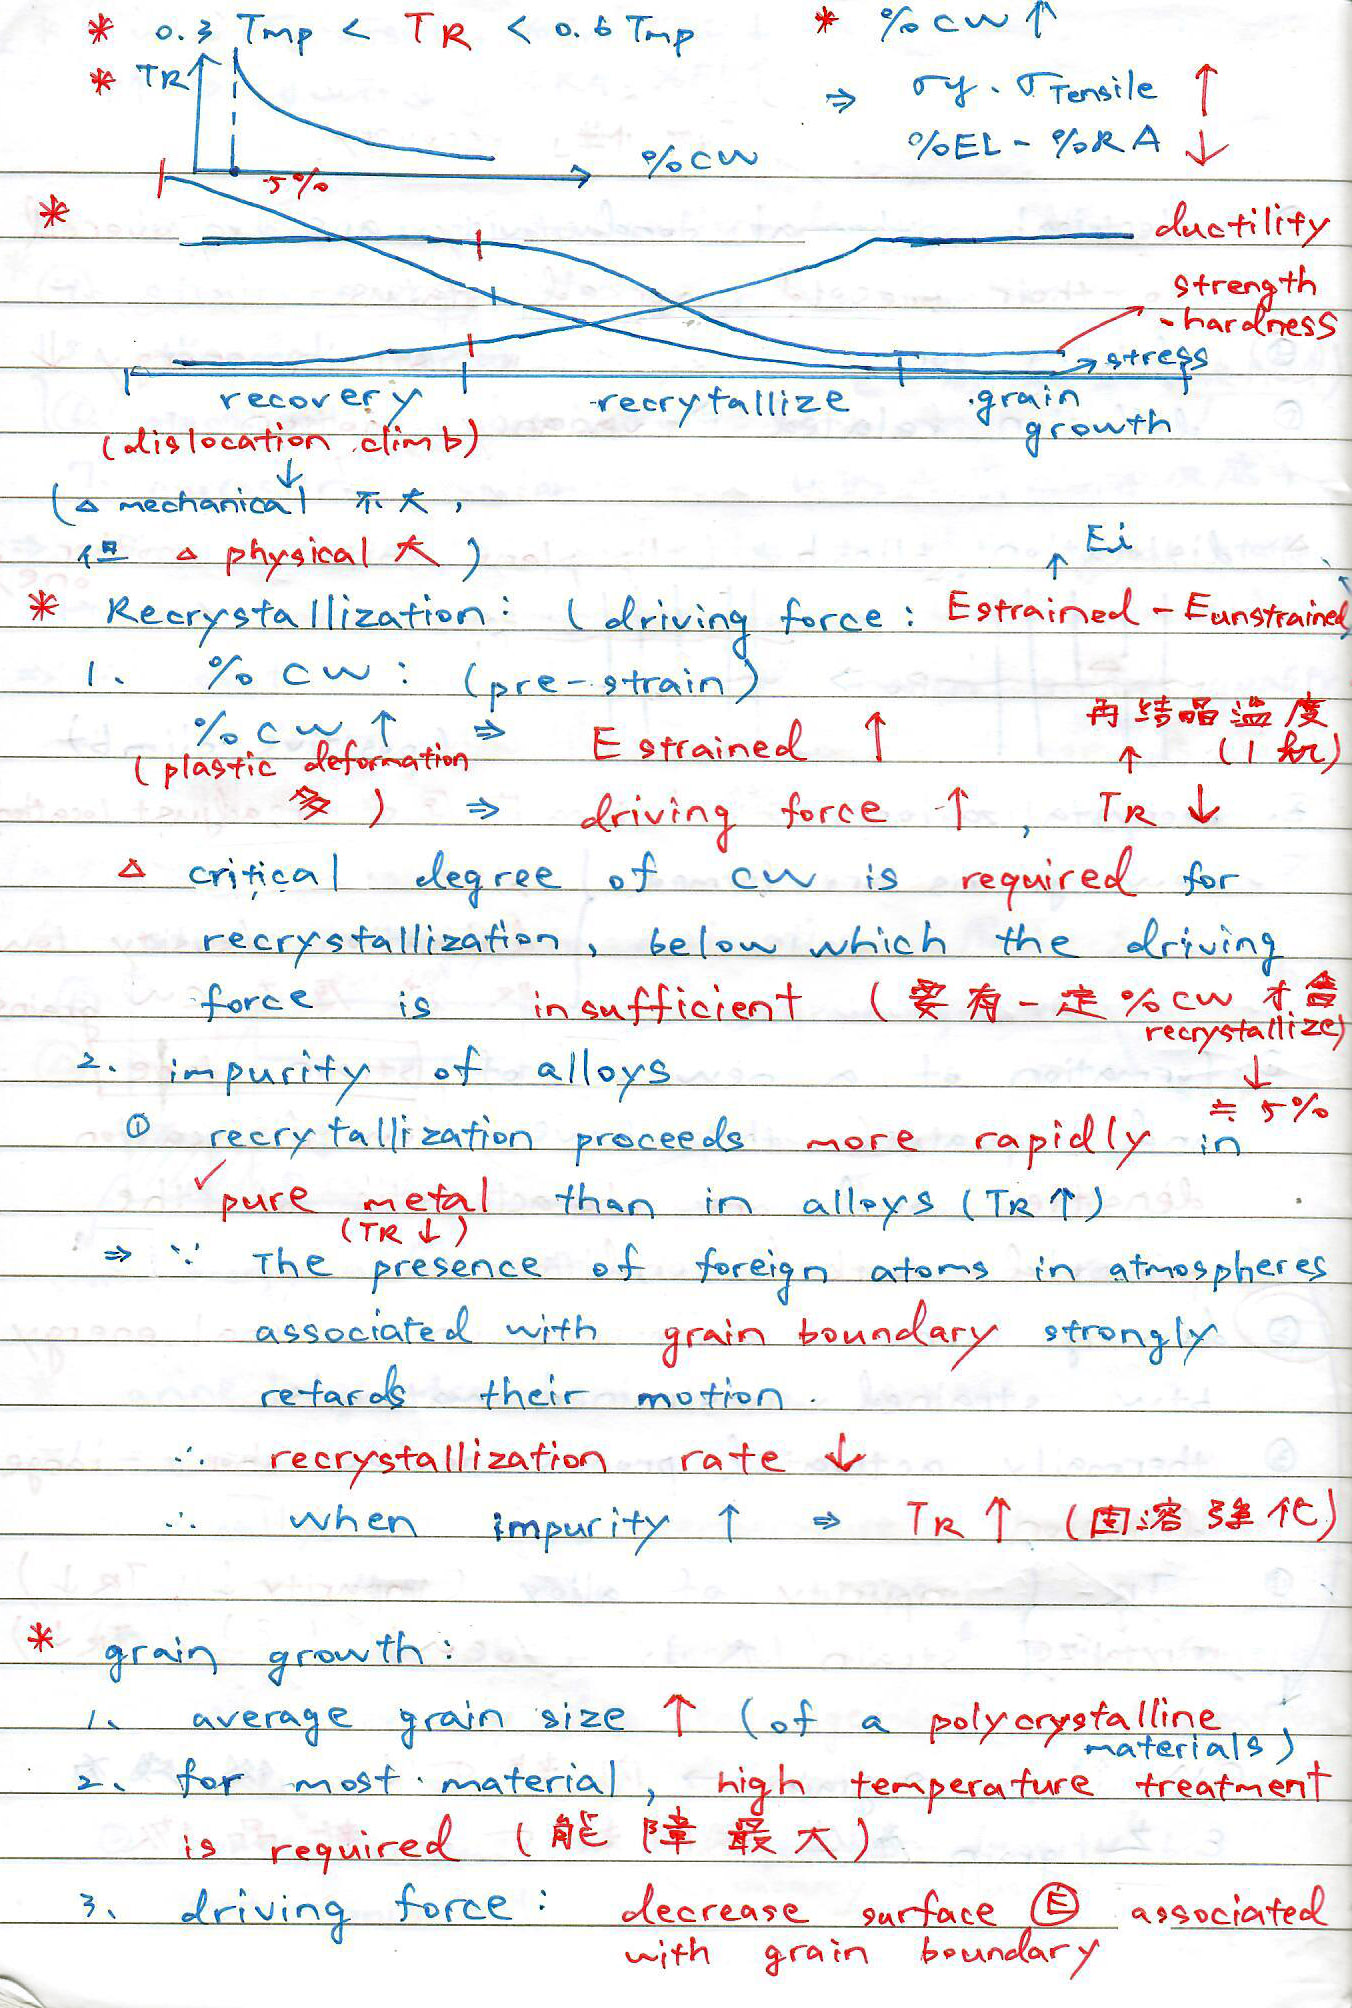 * 0.3 Tmp < TR < 0.6 Tmp
* %CW ↑
* TR
%CW
5%
⇒ σy . σTensile ↑
%EL - %RA ↓
*
ductility
strength
- hardness
stress
recovery
recrytallize
grain
growth
(dislocation climb)
↓
(△ mechanical 不大,
但 △ physical 大)
↑ Ei
* Recrystallization: (driving force: Estrained - Eunstrained
1. %CW: (pre-strain)
%CW ↑ ⇒ Estrained ↑
再结晶溫度
(plastic deformation
↑ (1 hr)
多) ⇒ driving force ↑, TR ↓
△ critical degree of CW is required for
recrystallization, below which the driving
force is insufficient (要有一定%CW才會
recrystallize)
↓
≒ 5%
2. impurity of alloys
① recrytallization proceeds more rapidly in
✓pure metal than in alloys (TR↑)
(TR↓)
⇒ ∵ The presence of foreign atoms in atmospheres
associated with grain boundary strongly
retards their motion.
∴ recrystallization rate ↓
∴ when impurity ↑ ⇒ TR ↑ (固溶強化)
* grain growth:
1. average grain size ↑ (of a polycrystalline
materials)
2. for most material, high temperature treatment
is required (能障最大)
3. driving force: decrease surface Ⓔ associated
with grain boundary